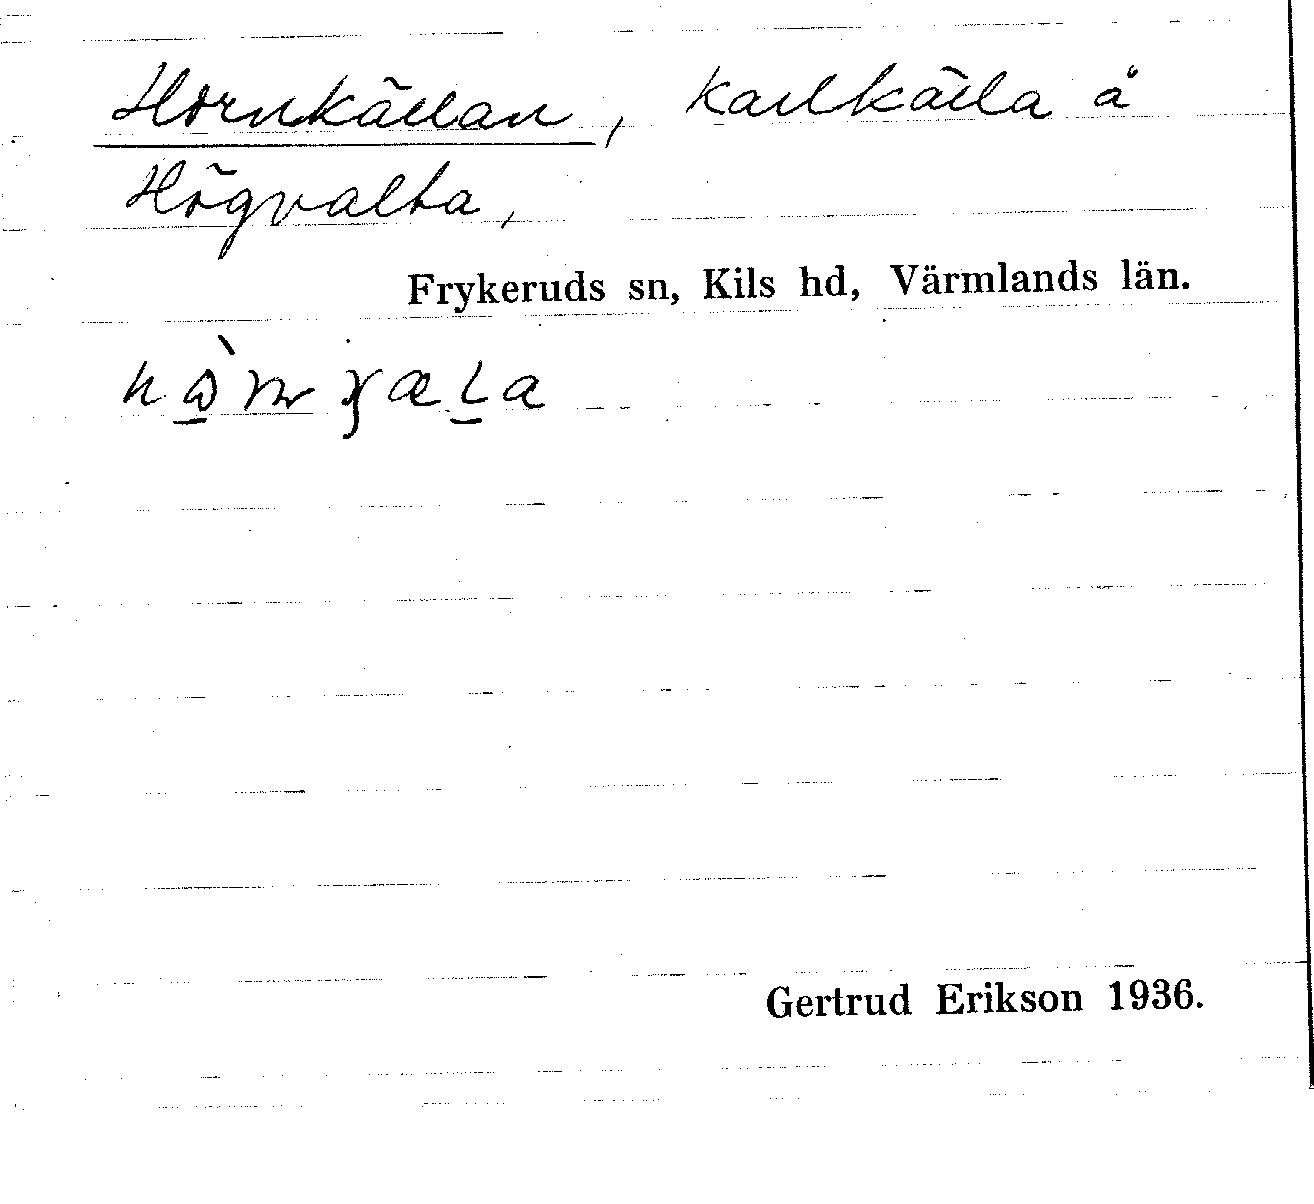 Hornkällan, kallkälla å
Högvalta,
Frykeruds sn, Kils hd, Värmlands län.
Gertrud Erikson 1936.